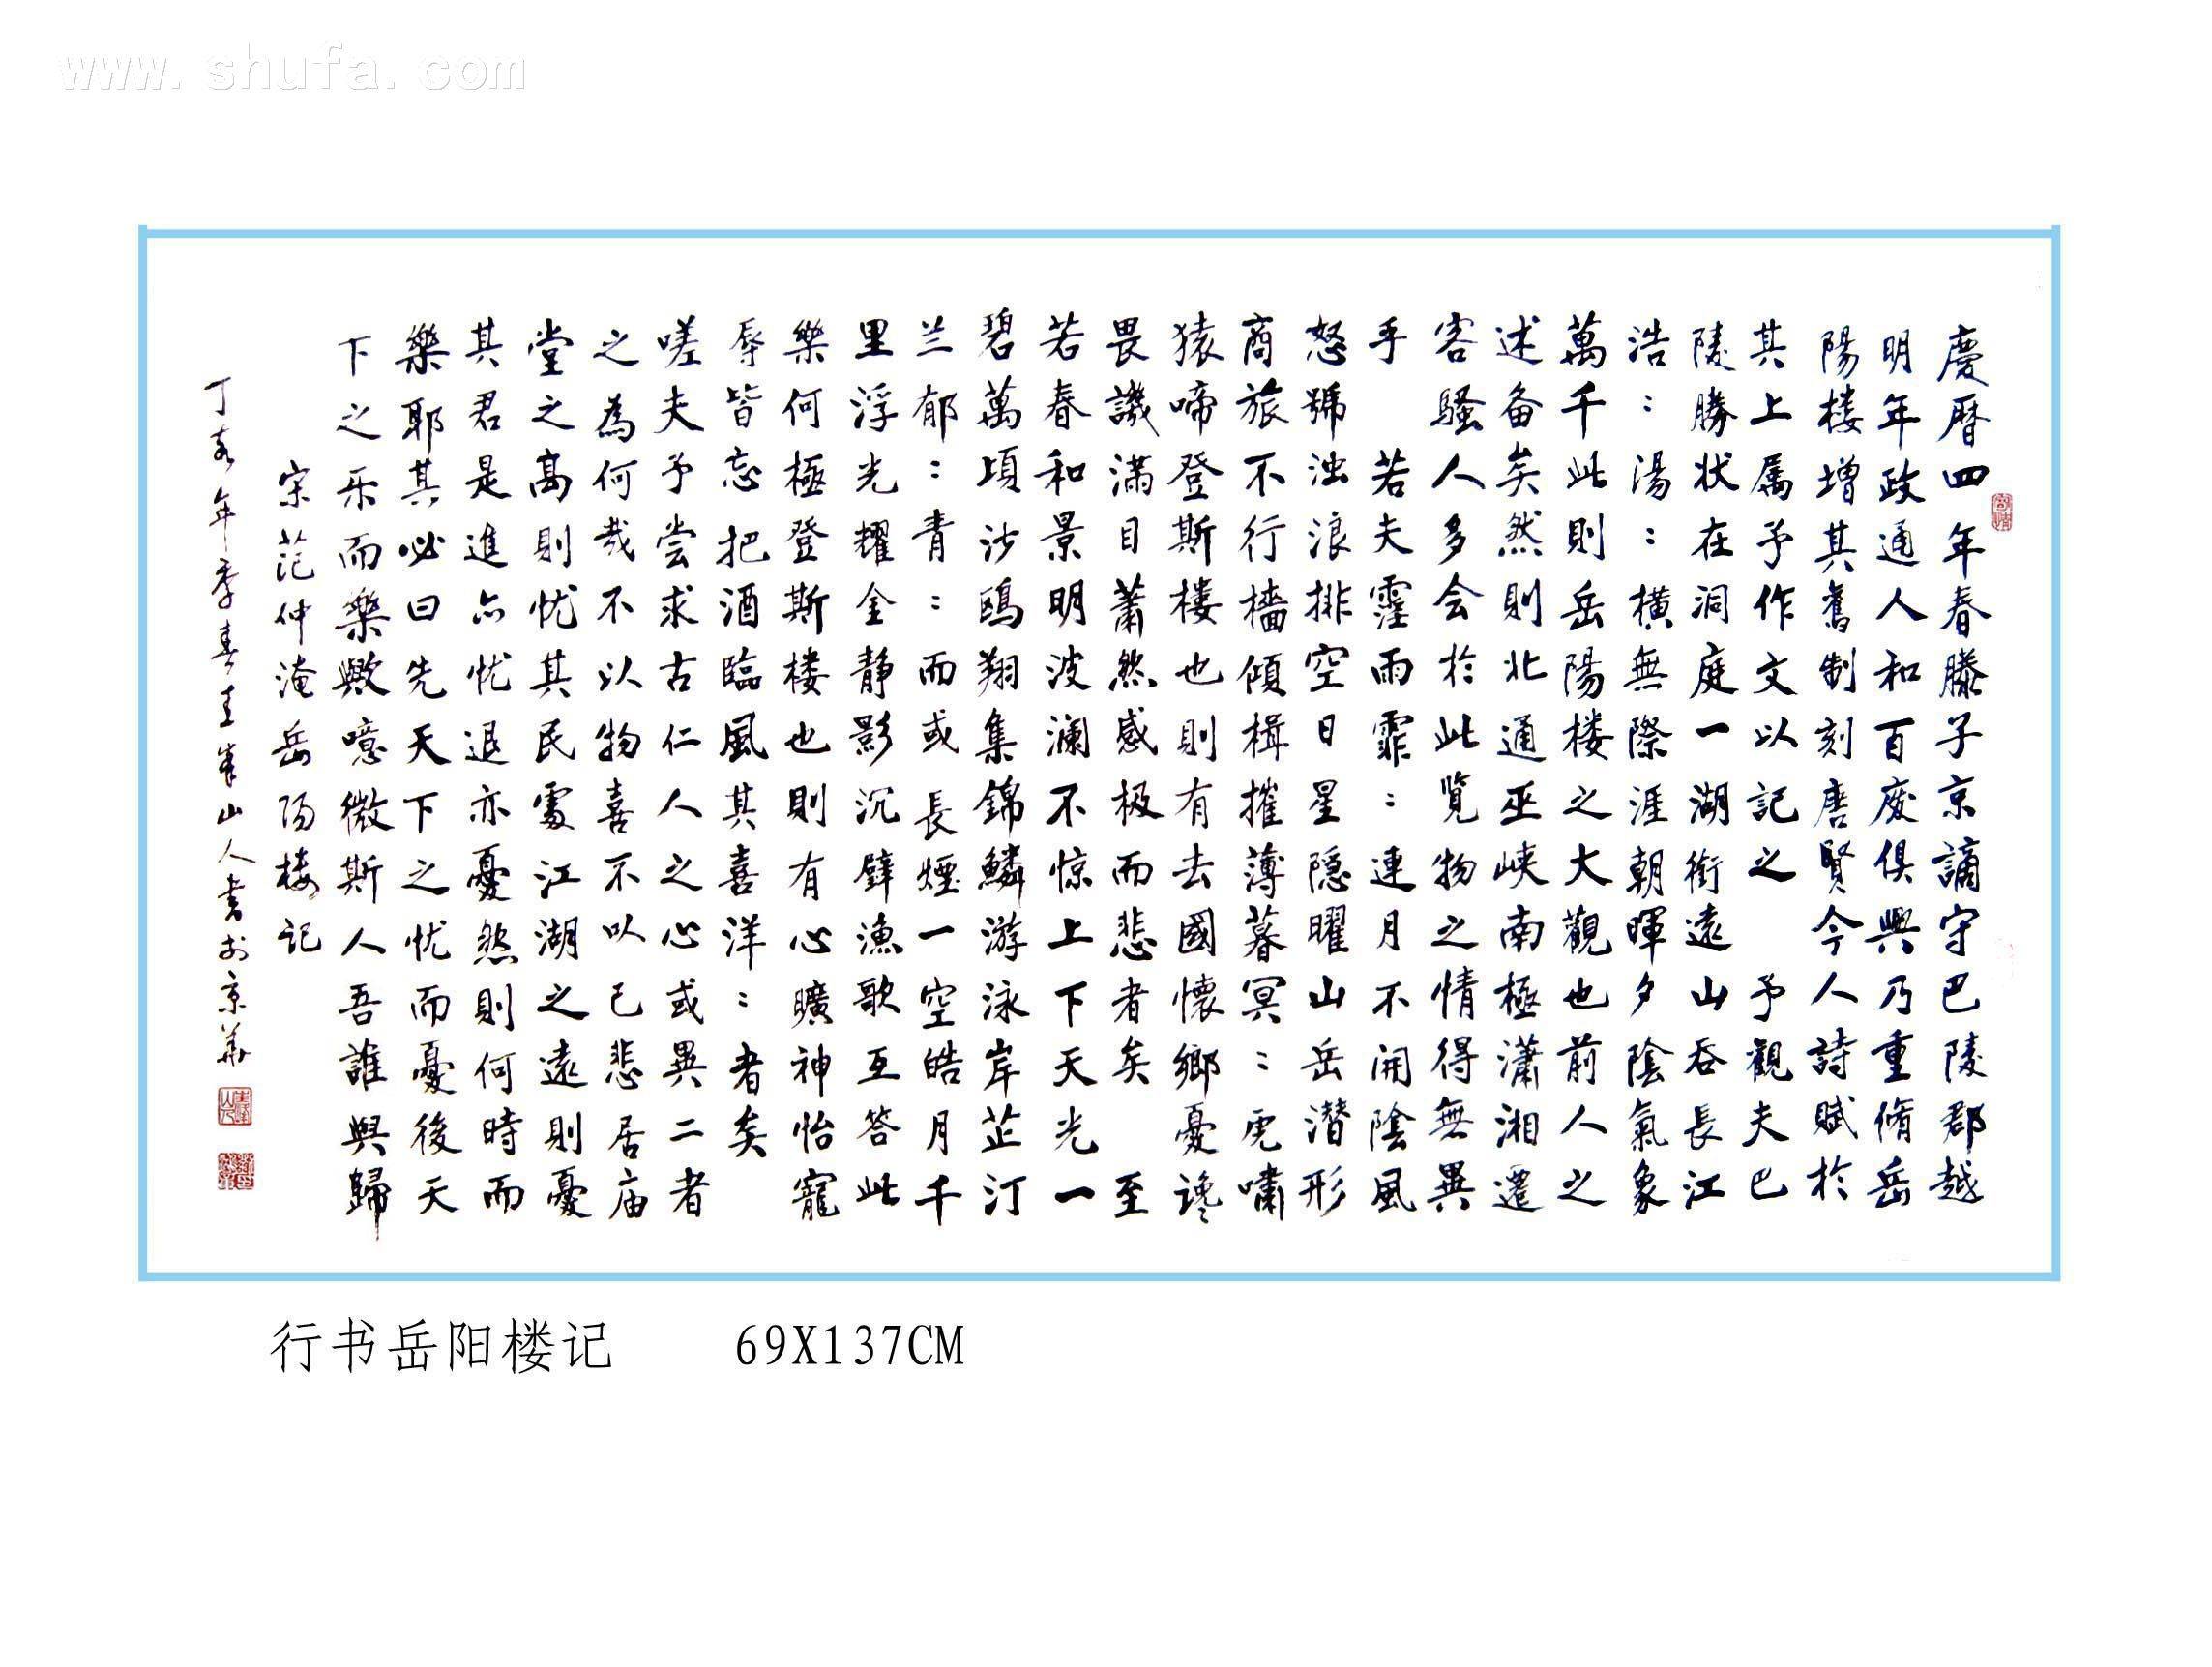 www.shufa.com
慶曆四年春滕子京謫守巴陵郡越
明年政通人和百废俱興乃重脩岳
陽楼增其舊制刻唐賢今人詩賦於
其上属予作文以記之 予觀夫巴
陵勝状在洞庭一湖銜遠山吞長江
浩:湯:橫無際涯朝暉夕陰氣象
萬千此則岳陽楼之大觀也前人之
述备矣然則北通巫峡南極瀟湘遷
客騷人多会於此览物之情得無異
乎 若夫霪雨霏:連月不開陰風
怒號浊浪排空日星隐曜山岳潜形
商旅不行檣傾楫摧薄暮冥:虎嘯
猿啼登斯楼也則有去國懷鄉憂讒
畏譏滿目蕭然感极而悲者矣 至
若春和景明波澜不惊上下天光一
碧萬頃沙鸥翔集錦鱗游泳岸芷汀
兰郁:青:而或長煙一空皓月千
里浮光耀金静影沉璧漁歌互答此
樂何極登斯楼也則有心曠神怡寵
辱皆忘把酒臨風其喜洋:者矣
嗟夫予尝求古仁人之心或異二者
之為何哉不以物喜不以己悲居庙
堂之高則忧其民處江湖之遠則憂
其君是進亦忧退亦憂然則何時而
樂耶其必曰先天下之忧而憂後天
下之乐而樂歟噫微斯人吾誰與歸
宋范仲淹岳陽楼记
丁亥年季春王峰山人书於京華
行书岳阳楼记 69X137CM